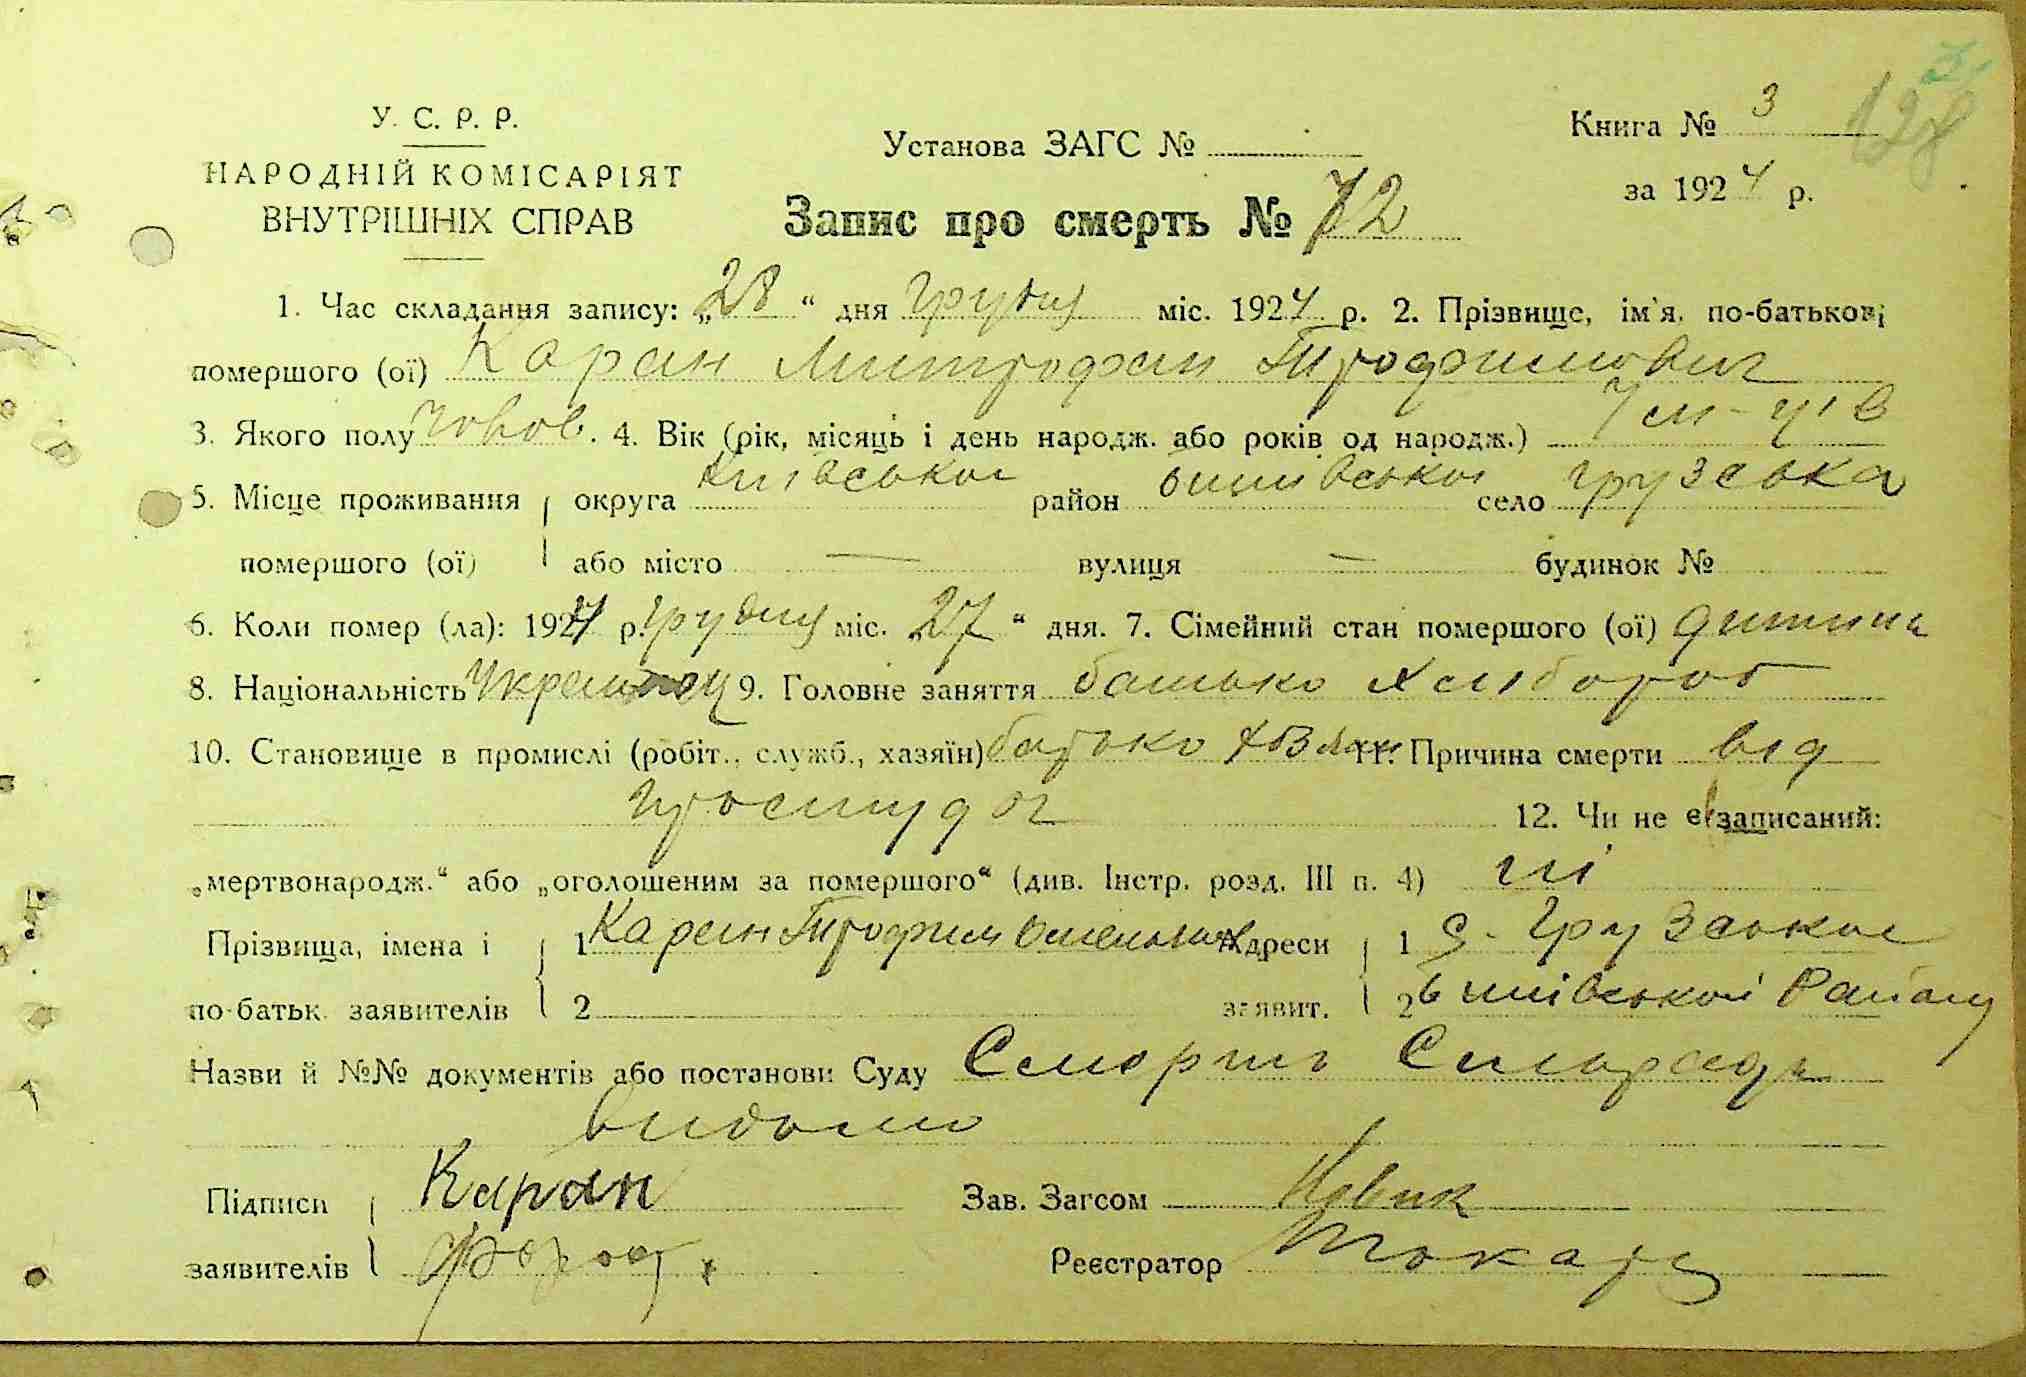 У. С. Р. Р.
НАРОДНІЙ КОМІСАРІЯТ
ВНУТРІШНІХ СПРАВ
Установа ЗАГС №
Книга № 3
128
за 1924 р.
Запис про смерть № 72
1. Час складання запису: „28“ дня грудня міс. 1924 р. 2. Прізвище, ім'я, по-батькові
помершого (ої) Каран Митрофан Трофимович
3. Якого полу чолов. 4. Вік (рік, місяць і день народж. або років од народж.) 7 м-ців
5. Місце проживання округа Київської район Бишівської село Грузська
помершого (ої) або місто — вулиця — будинок №
6. Коли помер (ла): 1924 р. грудня міс. „27“ дня. 7. Сімейний стан помершого (ої) дитина
8. Національність Украинец 9. Головне заняття батько хлібороб
10. Становище в промислі (робіт., служб., хазяїн) батько 11. Причина смерти від
простуди 12. Чи не є записаний:
„мертвонародж.“ або „оголошеним за помершого“ (див. Інстр. розд. III п. 4) ні
Прізвища, імена і 1 Каран Трофим Адреси 1 с. Грузської
по-батьк. заявителів 2 заявит. 2 Бишівської Району
Назви й №№ документів або постанови Суду Смерть Сильраді
видомо
Підписи Каран Зав. Загсом Новик
заявителів Реєстратор Токар